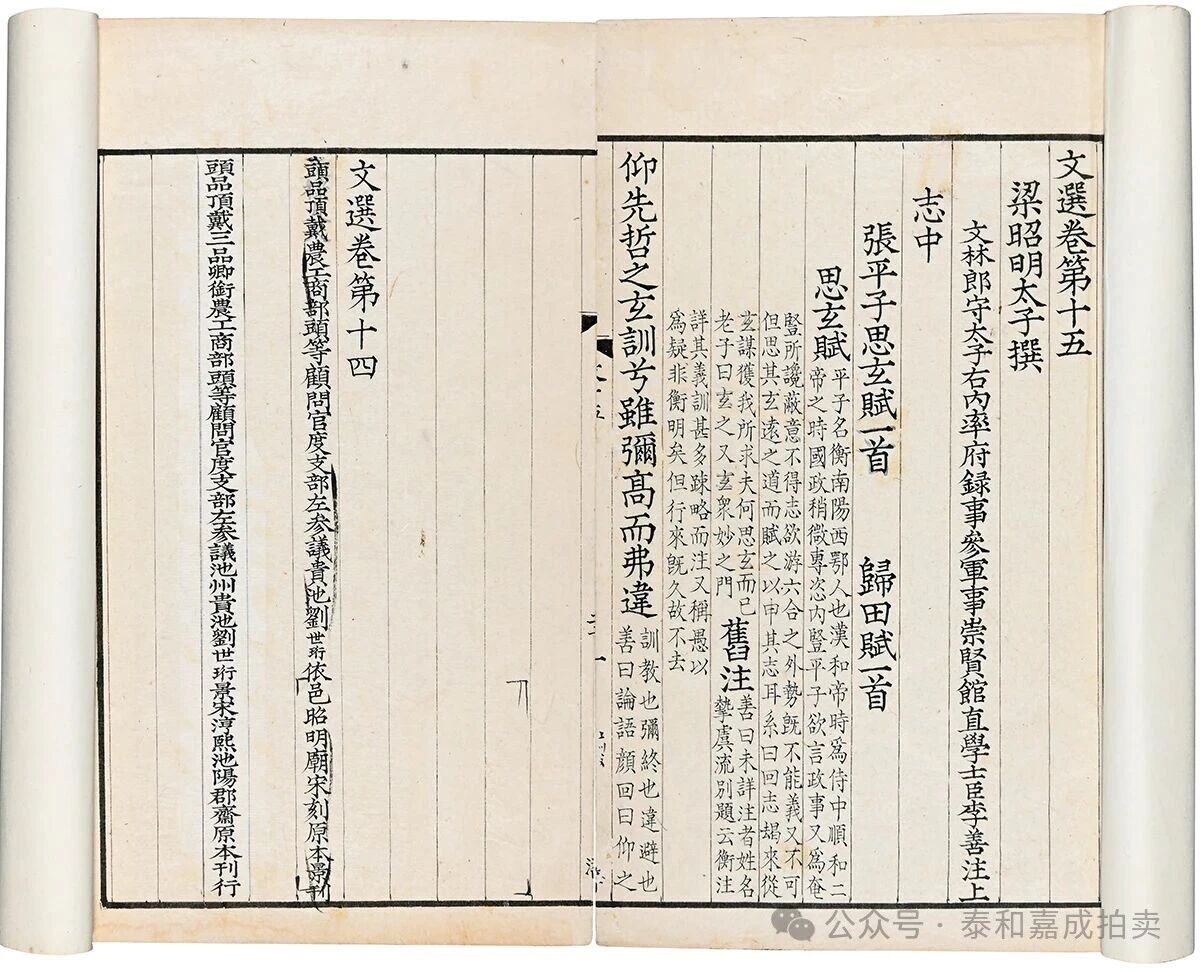 文選卷第十五
梁昭明太子撰
文林郎守太子右內率府録事參軍事崇賢館直學士臣李善注上
志中
張平子思玄賦一首　歸田賦一首
思玄賦
平子名衡南陽西鄂人也漢和帝時爲侍中順和二
帝之時國政稍微專恣內豎平子欲言政事又爲奄
豎所讒蔽意不得志欲游六合之外勢旣不能義又不可
但思其玄遠之道而賦之以申其志耳系曰回志朅來從
玄謀獲我所求夫何思玄而已
老子曰玄之又玄衆妙之門
舊注
善曰未詳注者姓名
摯虞流別題云衡注
詳其義訓甚多踈略而注又稱愚以
爲疑非衡明矣但行來旣久故不去
仰先哲之玄訓兮雖彌高而弗違
訓教也彌終也違避也
善曰論語顏回曰仰之
文選卷第十四
頭品頂戴農工商部頭等顧問官度支部左參議貴池劉世珩依邑昭明廟宋刻原本景刊
頭品頂戴三品卿銜農工商部頭等顧問官度支部左參議池州貴池劉世珩景宋淳熙池陽郡齋原本刊行
公众号·泰和嘉成拍卖